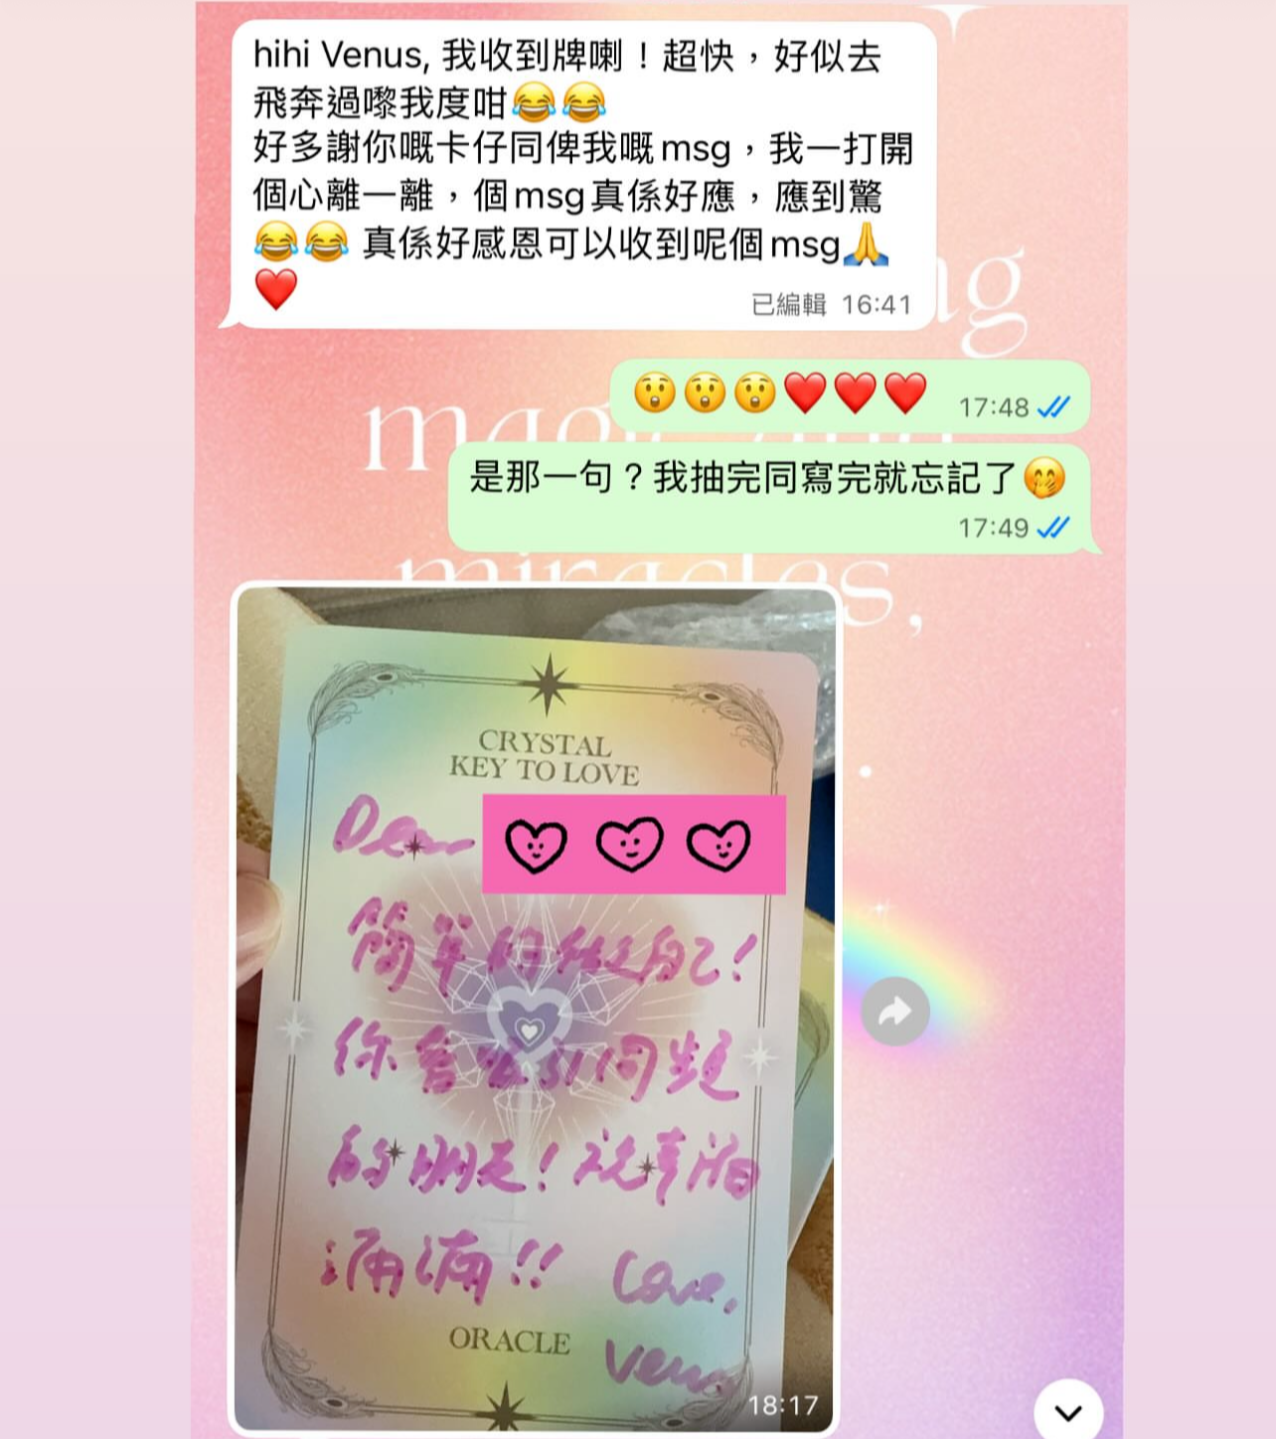 hihi Venus, 我收到牌喇！超快，好似去
飛奔過嚟我度咁😂😂
好多謝你嘅卡仔同俾我嘅msg，我一打開
個心離一離，個msg真係好應，應到驚
😂😂 真係好感恩可以收到呢個msg🙏
❤️
已編輯 16:41
😲😲😲❤️❤️❤️ 17:48
是那一句？我抽完同寫完就忘記了🤭
17:49
miracles,
CRYSTAL
KEY TO LOVE
Dear
簡單的做自己！
你會吸引同頻
的朋友！祝幸福
滿滿!! Love,
ORACLE
Venus
18:17